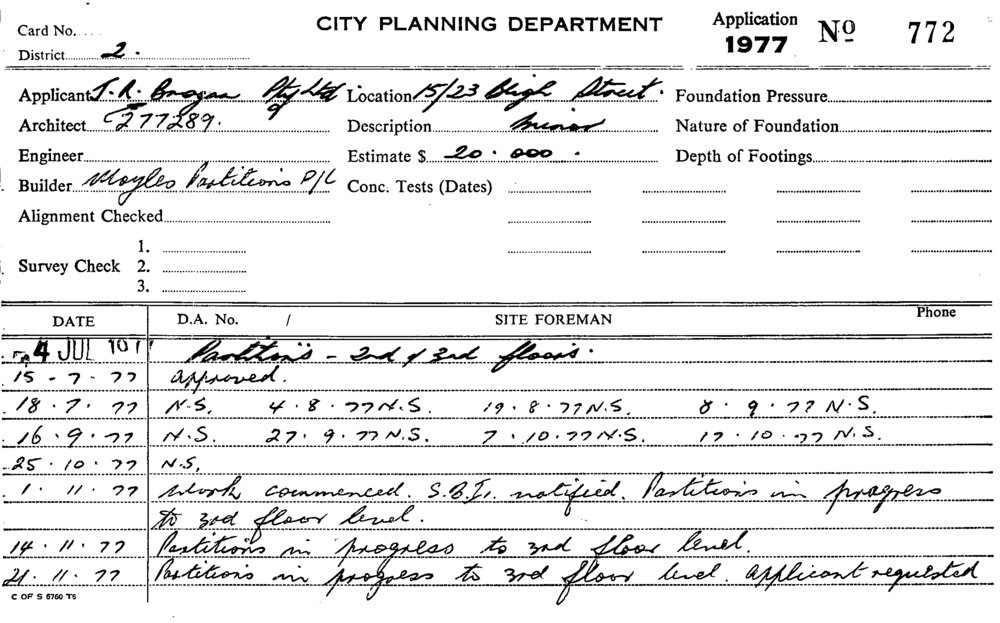 Card No.....
CITY PLANNING DEPARTMENT
Application
1977
Nº 772
District 2.
Applicant J.R. Brogan Pty Ltd Location 15/23 Bligh Street. Foundation Pressure
Architect 277289. Description Minor Nature of Foundation
Engineer Estimate $ 20.000. Depth of Footings
Builder Moyles Partitions P/L Conc. Tests (Dates)
Alignment Checked
1.
Survey Check 2.
3.
DATE D.A. No. / SITE FOREMAN Phone
4 JUL 197 Partitions - 2nd & 3rd floors.
15-7-77 approved.
18.7.77 N.S. 4.8.77 N.S. 19.8.77 N.S. 8.9.77 N.S.
16.9.77 N.S. 27.9.77 N.S. 7.10.77 N.S. 17.10.77 N.S.
25.10.77 N.S.
1.11.77 Work commenced. S.B.I. notified. Partitions in progress
to 3rd floor level.
14.11.77 Partitions in progress to 3rd floor level.
21.11.77 Partitions in progress to 3rd floor level. applicant requested
C OF S 5760 T5